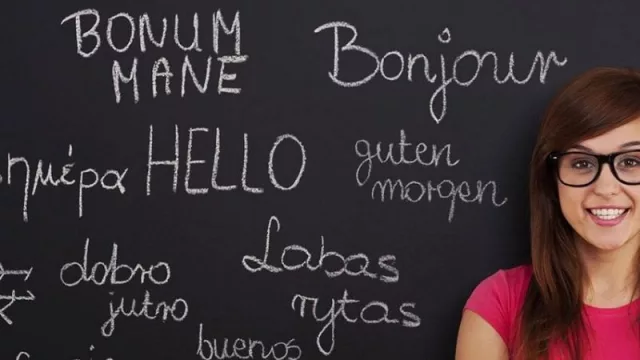 BONUM
MANE
Bonjour
ημέρα
HELLO
guten
morgen
dobro
jutro
Labas
rytas
buenos